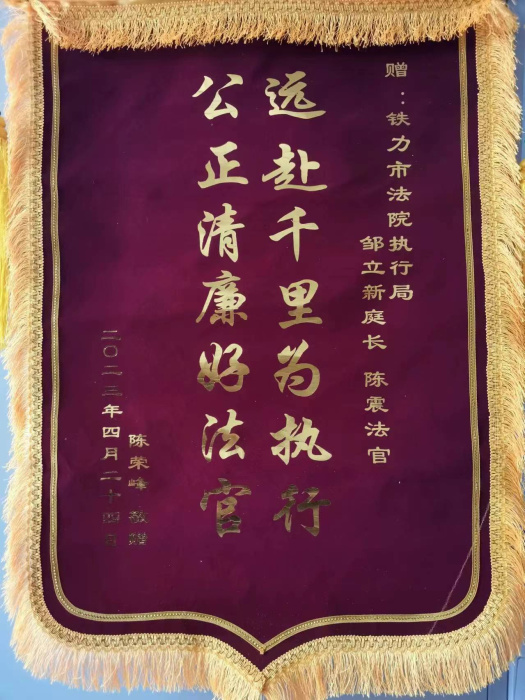 赠：铁力市法院执行局
邹立新庭长 陈震法官
远赴千里为执行
公正清廉好法官
陈荣峰 敬赠
二〇二三年四月二十四日